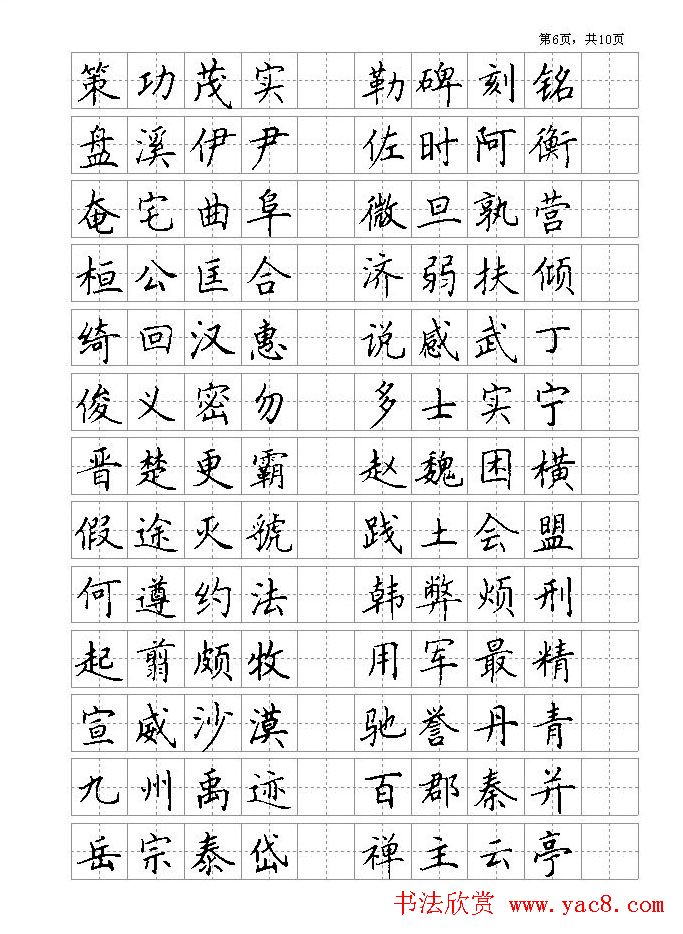 第6页，共10页
策功茂实 勒碑刻铭
盘溪伊尹 佐时阿衡
奄宅曲阜 微旦孰营
桓公匡合 济弱扶倾
绮回汉惠 说感武丁
俊义密勿 多士实宁
晋楚更霸 赵魏困横
假途灭虢 践土会盟
何遵约法 韩弊烦刑
起翦颇牧 用军最精
宣威沙漠 驰誉丹青
九州禹迹 百郡秦并
岳宗泰岱 禅主云亭
书法欣赏 www.yac8.com